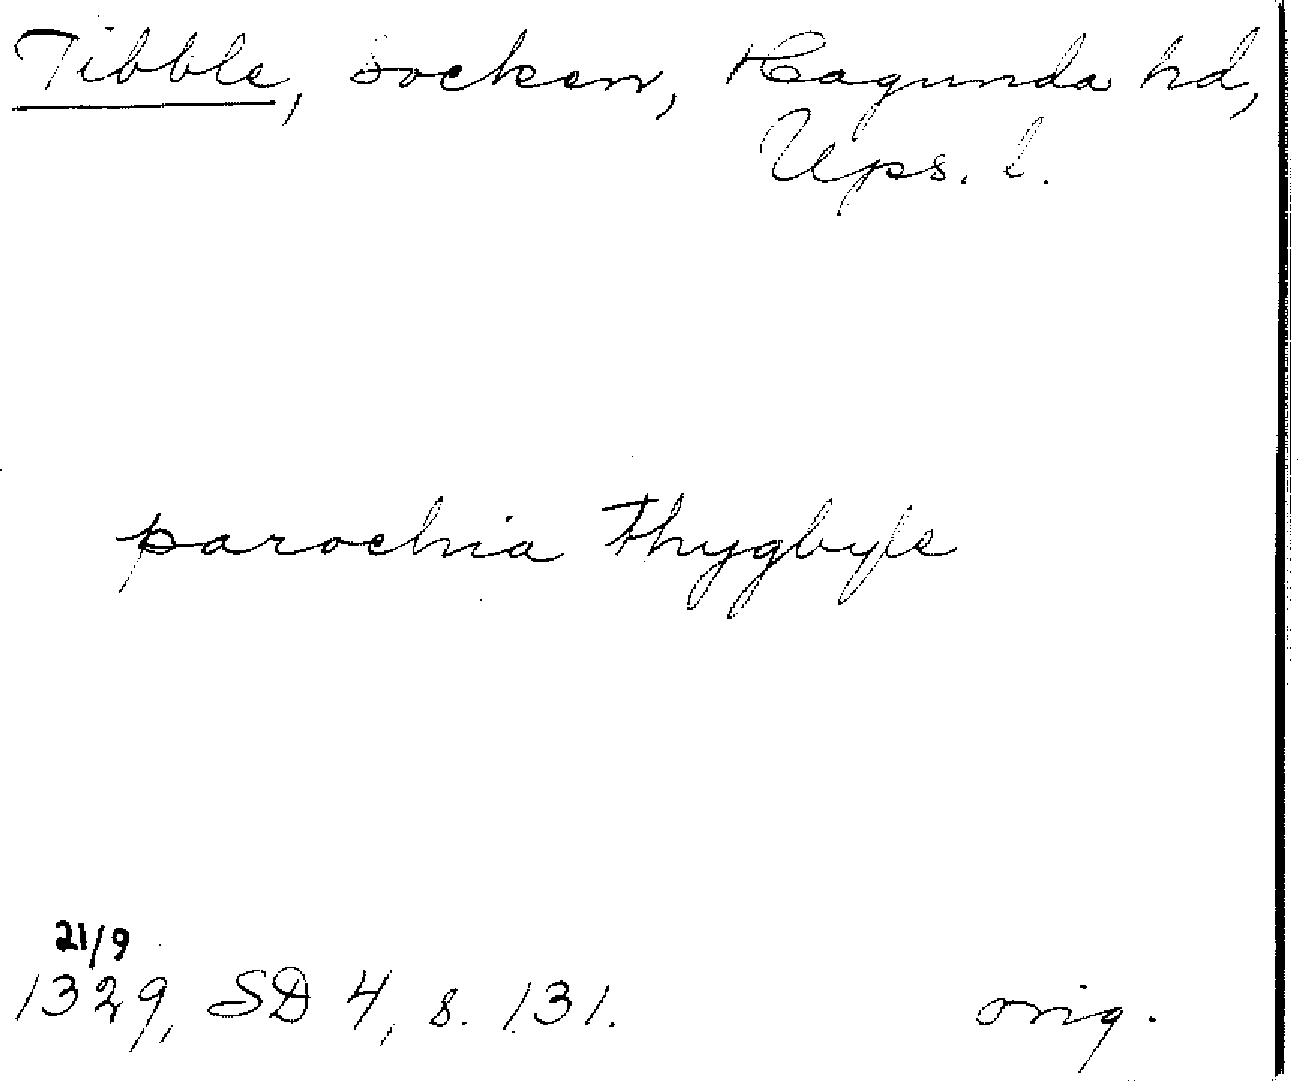 Tibble, socken, Hagunda hd,
Ups. l.
parochia Thygbyle
21/9
1329, SD 4, s. 131.
orig.